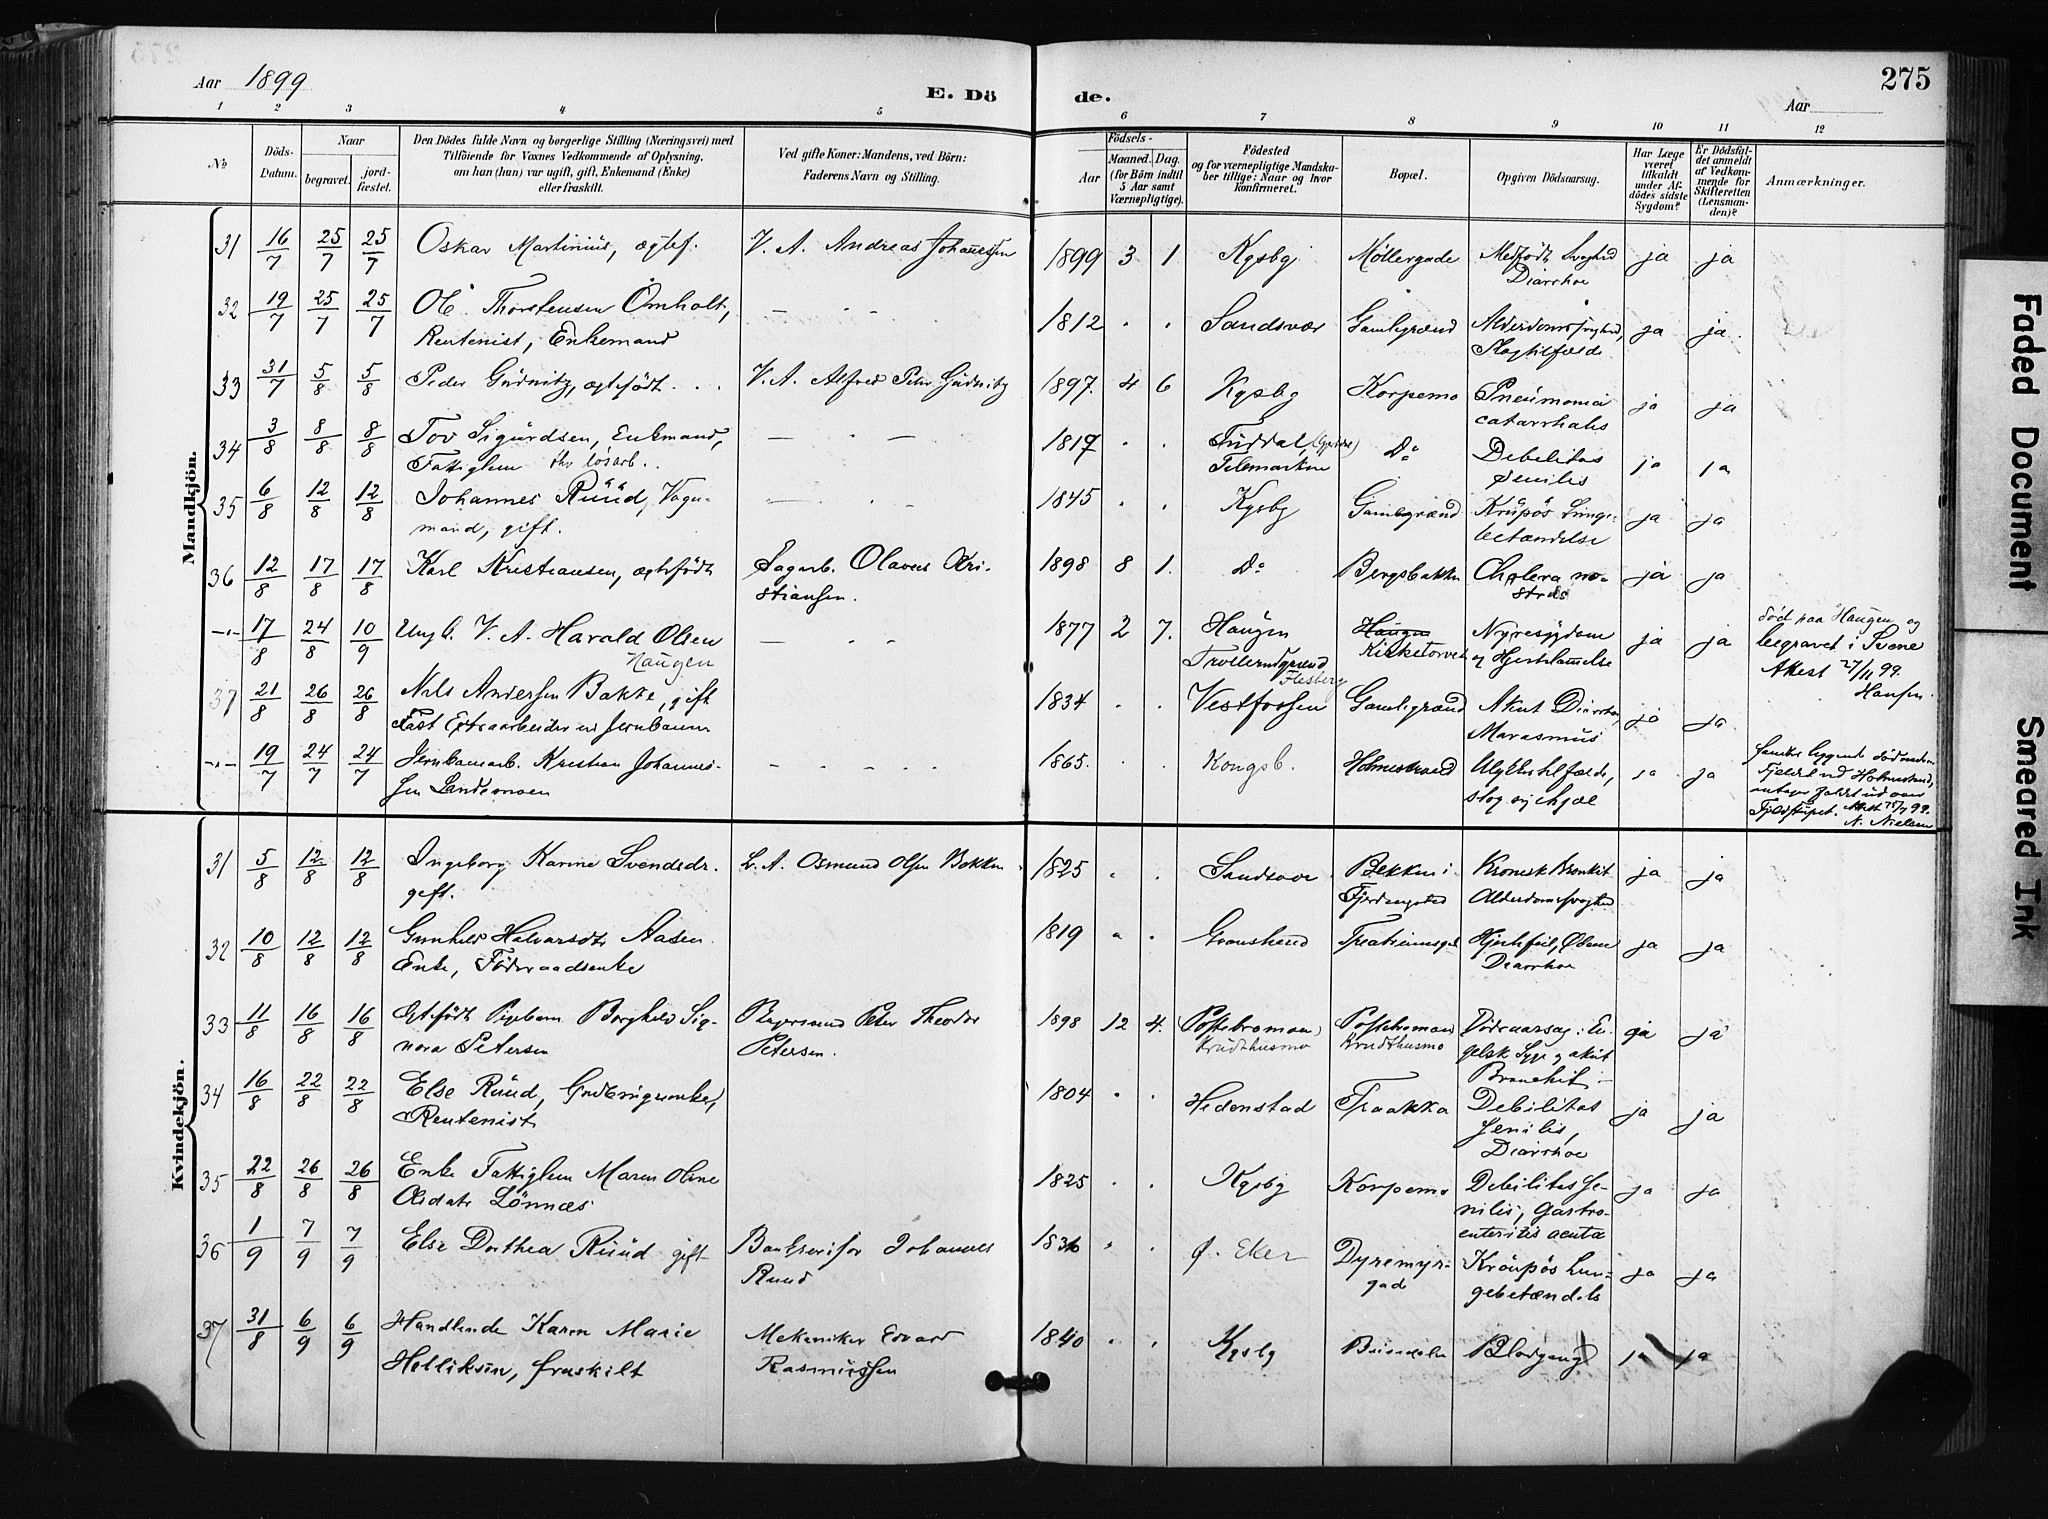 Aar 1899
E. Döde.
275
Aar
1 2 3 4 5 6 7 8 9 10 11 12
No
Döds-Datum.
Naar
begravet.
jordfæstet.
Den Dödes fulde Navn og borgerlige Stilling (Næringsvei) med
Tilföiende for Voxnes Vedkommende af Oplysning,
om han (hun) var ugift, gift, Enkemand (Enke)
eller fraskilt.
Ved gifte Koner: Mandens, ved Börn:
Faderens Navn og Stilling.
Födsels-
Aar
Maaned. Dag.
(for Börn indtil
5 Aar samt
Værnepligtige).
Födested
og for værnepligtige Mandska-
ber tillige: Naar og hvor
konfirmeret.
Bopæl.
Opgiven Dödsaarsag.
Har Læge
været
tilkaldt
under Af-
dödes sidste
Sygdom?
Er Dödsfal-
det anmeldt
af Vedkom-
mende for
Skifteretten
(Lensman-
den)?
Anmærkninger.
Mandkjön.
31 16/7 25/7 25/7 Oskar Martinius, ægtef. V. A. Andreas Johanessen 1899 3 1 Kgsbg Møllergade Medfödt Svaghed ja ja
Diarrhoe
32 19/7 25/7 25/7 Ole Thorstensen Omholt, 1812 Sandsvær Gamlegrænd Alderdomssvaghed, ja ja
Rentenist, Enkemand Slagtilfælde
33 31/7 5/8 5/8 Peder Gudnitz, ægtefödt V. A. Alfred Peter Gudnitz 1897 4 6 Kgsbg Korpemo Pneumonia ja ja
catarrhalis
34 3/8 8/8 8/8 Tov Sigurdsen, Enkmand, 1817 Tuddal Do Debilitas ja ja
Fattiglem fhv løsarb. Telemarken senilis
35 6/8 12/8 12/8 Johannes Ruud, Vogn- 1845 Kgsbg Gamlegrænd Krupös Lunge- ja ja
mand, gift. betændelse
36 12/8 17/8 17/8 Karl Kristiansen, ægtefödt Sagarb. Olaves Kri- 1898 8 1. Do Bergsbakken Cholera no- ja ja
stiansen. stras
17/8 24/8 10/9 Ungk. V. A. Harald Olsen 1877 2 7. Haugen Haugen Nyresygdom ja ja död paa Haugen og
Haugen Kirketorvet og Hjertelammelse begravet i Svene
Flesberg Attest 27/11 99.
Hansen.
37 21/8 26/8 26/8 Nils Andersen Bakke, gift 1834 Vestfossen Gamlegrænd Akut Diarrhoe, ja ja
Fast Extraarbeider ved Jernbanen Marasmus
19/7 24/7 24/7 Jernbanearb. Kristian Johannes- 1865. Kongsb. Holmestrand Ulykkestilfælde, ja ja
sen Landemoen slog sig ihjæl
Fjeldet ved Holmestrand,
Fjeldstupet.
N. Nielsen
Kvindekjön.
31 5/8 12/8 12/8 Ingeborg Karine Svendsdr. L. A. Osmund Olsen Bekken 1825 Sandsvær Bekken i Kronisk Bronkit ja ja
gift. Fjerdingsted Alderdomssvaghed
32 10/8 12/8 12/8 Gunhild Halvarsdtr Aasen 1819 Gransherad Hjertefeil, ja ja
Enke, Föderaadsenke Diarrhoe
33 11/8 16/8 16/8 Egtefödt Pigebarn Borghild Sig- Peter Theodor 1898 12 4. Kruthusmo Krudthusmo Dödsaarsag: En- ja ja
nora Petersen Petersen. gelsk Syge og akut
Bronchit
34 16/8 22/8 22/8 Else Ruud, Gaardbrugerenke, 1804 Hedenstad Traakka Debilitas ja ja
Rentenist Senilis,
Diarrhoe
35 22/8 26/8 26/8 Enke Fattiglem Maren Oline 1825 Kgsbg Korpemo Debilitas Se- ja ja
Olsdatr Lönnæs nilis, Gastro-
enteritis acuta
36 1/9 7/9 7/9 Else Dorthea Ruud gift Johannes 1836 Ø. Eker Dyremyr- Kroupös Lun- ja ja
Ruud gad gebetændels
37 31/8 6/9 6/9 Handlende Karen Marie Mekaniker Edvard 1840 Kgsbg Blodgang ja ja
Helliksen, fraskilt Rasmussen
Faded Document
Smeared Ink